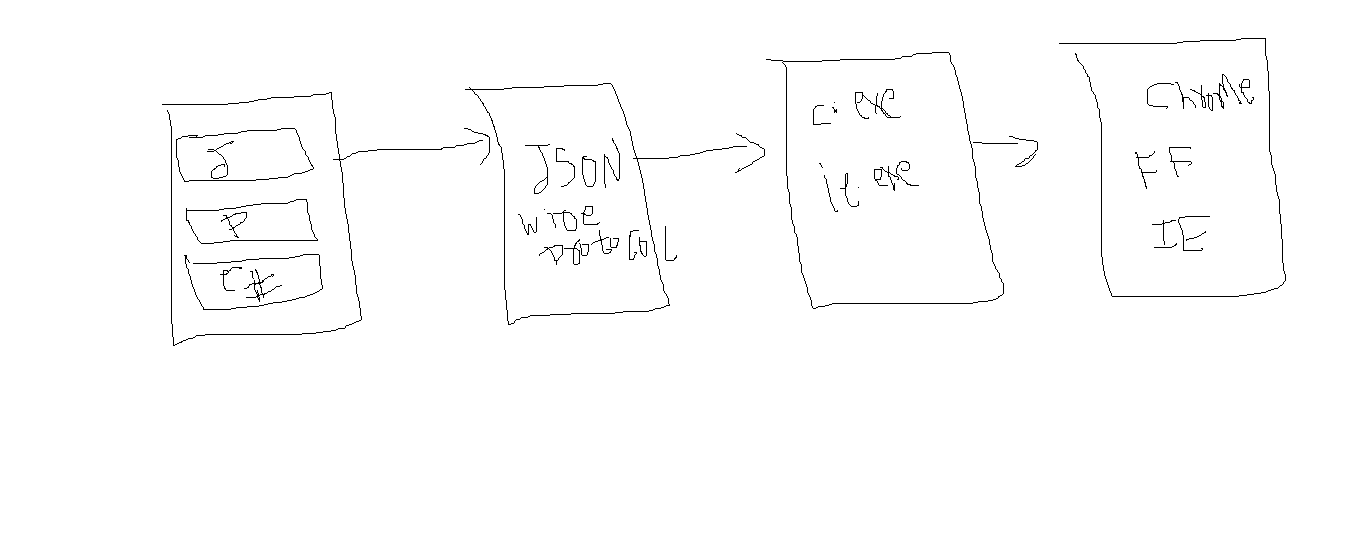 J
P
C#
JSON
wire
protocol
c.exe
ie.exe
Chrome
FF
IE